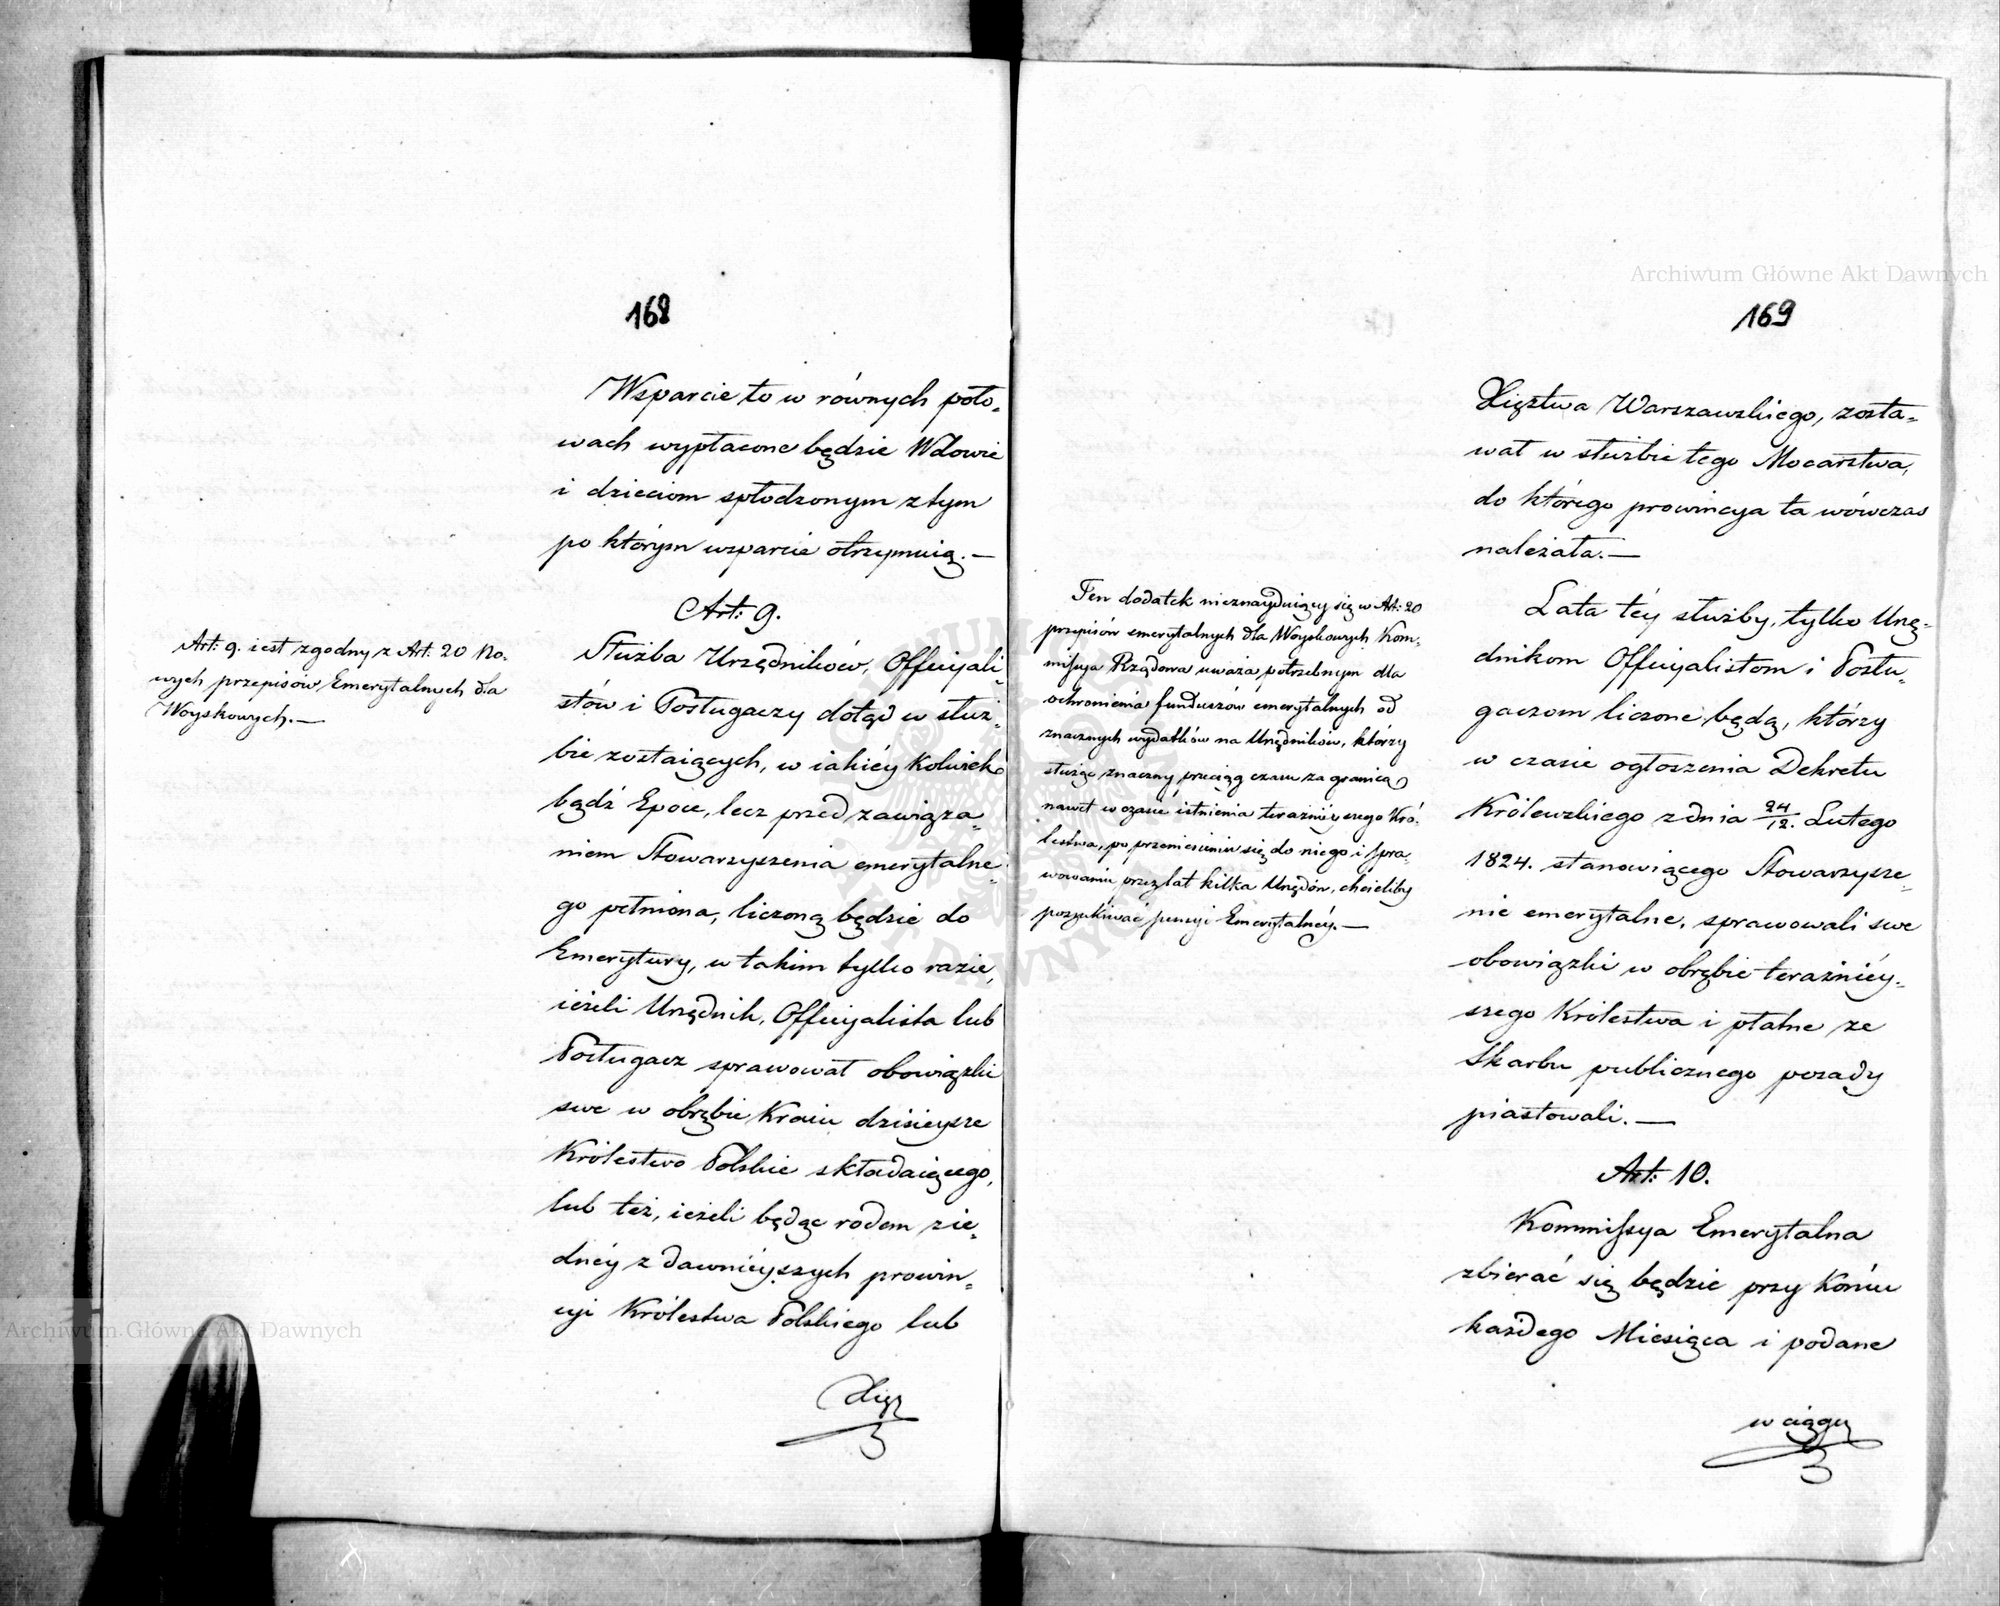 168
Wsparcie to w równych poło-
wach wypłacone będzie Wdowie
i dzieciom spłodzonym z tym
po którym wsparcie otrzymuią.—
Art: 9.
Art: 9. iest zgodny z Art: 20 No-
wych przepisów Emerytalnych dla
Woyskowych.—
Służba Urzędników, Officyali-
stów i Posługaczy dotąd w służ-
bie zostaiących, w iakiéy kolwiek
bądź Epoce, lecz przed zawiąza-
niem Stowarzyszenia emerytalne-
go pełniona, liczoną będzie do
Emerytury, w takim tylko razie,
ieżeli Urzędnik, Officyalista lub
Posługacz sprawował obowiązki
swe w obrębie Kraiu dzisieysze
Królestwo Polskie składaiącego,
lub też, ieżeli będąc rodem z ie-
dnéy z dawniéyszych prowin-
cyi Królestwa Polskiego lub
Xięz
169
Xięztwa Warszawskiego, zosta-
wał w służbie tego Mocarstwa,
do którego prowincya ta wówczas
należała.—
Ten dodatek nieznayduiący się w Art: 20
przepisów emerytalnych dla Woyskowych Kom-
missya Rządowa uważa potrzebnym dla
ochronienia funduszów emerytalnych od
znacznych wydatków na Urzędników, którzy
służąc znaczny przeciąg czasu za granicą
nawet w czasie istnienia teraźniéyszego Kró-
lestwa, po przeniesieniu się do niego i spra-
wowaniu przez lat kilka Urzędów, chcieliby
poszukiwać pensyi Emerytalnéy.—
Lata téy służby, tylko Urzę-
dnikom Officyalistom i Posłu-
gaczom liczone będą, którzy
w czasie ogłoszenia Dekretu
Królewskiego z dnia 24/12. Lutego
1824. stanowiącego Stowarzysze-
nie emerytalne, sprawowali swe
obowiązki w obrębie teraźniéy-
szego Królestwa i płatne ze
Skarbu publicznego posady
piastowali.—
Art: 10.
Kommissya Emerytalna
zbierać się będzie przy końcu
każdego Miesiąca i podane
w ciągu
Archiwum Główne Akt Dawnych
Archiwum Główne Akt Dawnych